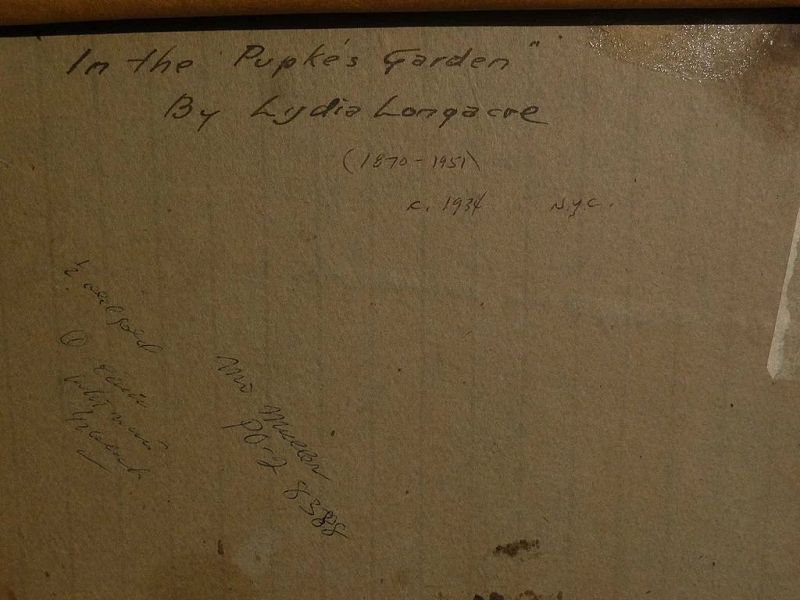 In the "Pupke's Garden"
By Lydia Longacre
(1870-1951)
c. 1934 N.Y.C.
Mrs Mueller
PO-2 8388